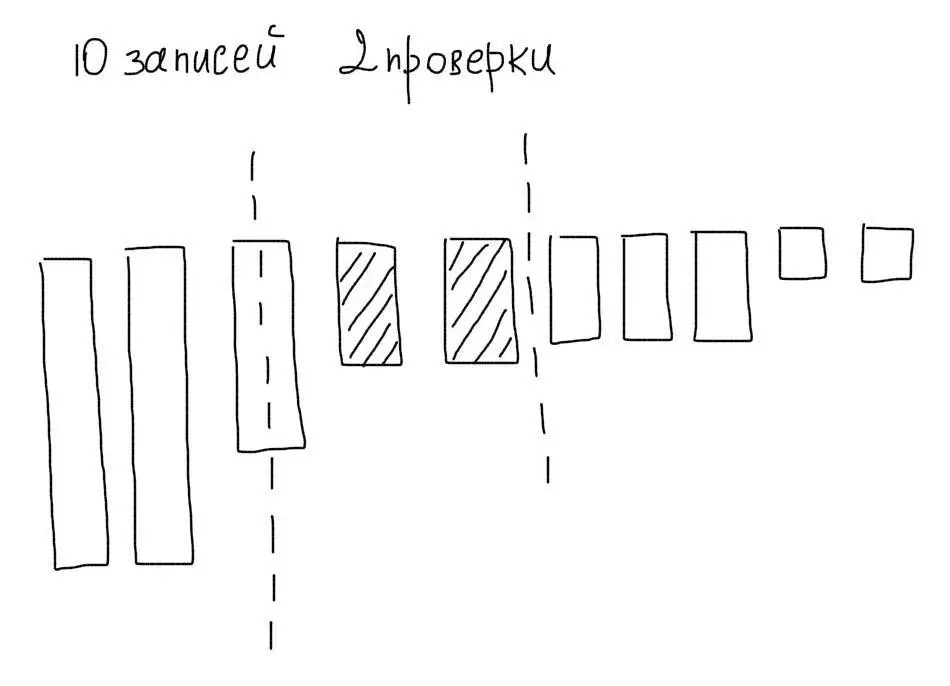 10 записей 2 проверки